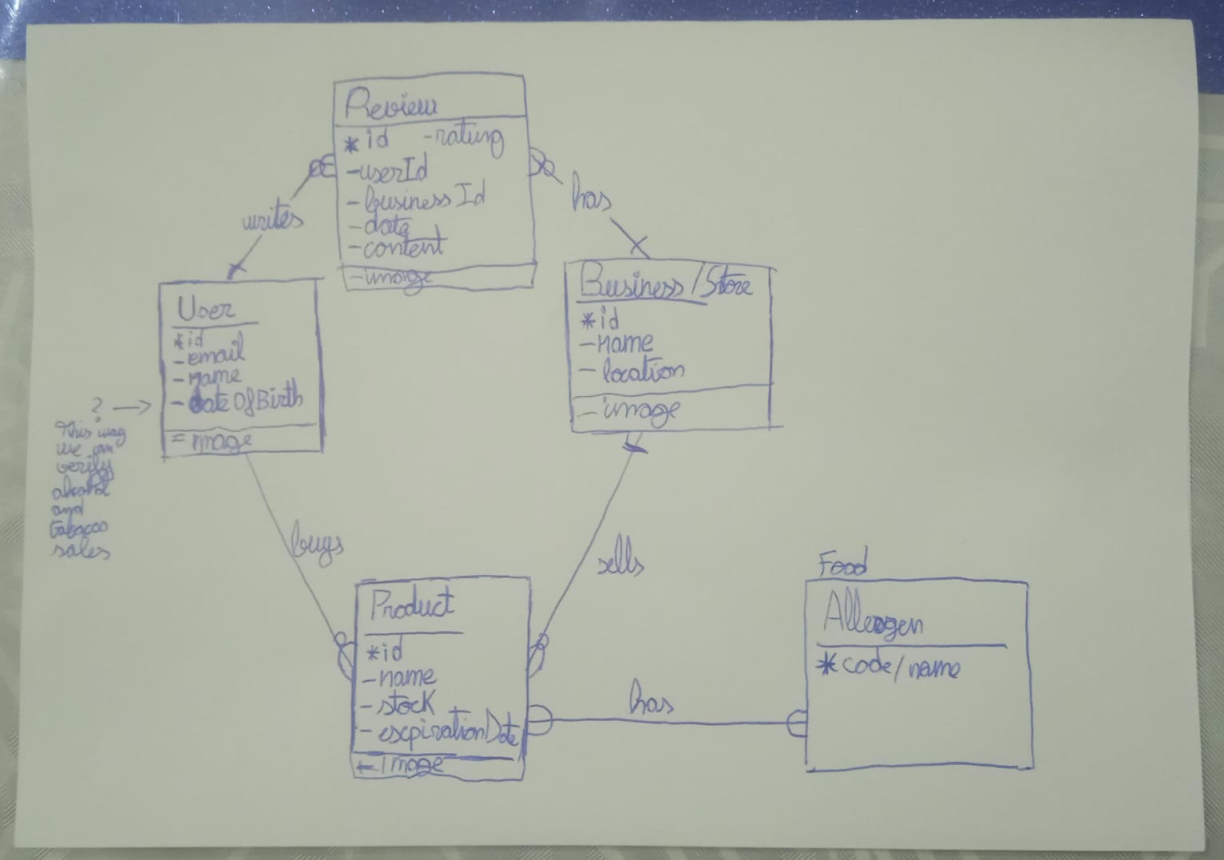 Review
*id -rating
-userId
-businessId
-data
-content
-image
writes
has
User
*id
-email
-name
-dateOfBirth
=image
? →
This way
we can
verify
alcohol
and
tabacco
sales
Business/Store
*id
-name
-location
-image
buys
sells
Product
*id
-name
-stock
-expirationDate
-Image
has
Food
Allergen
*code/name